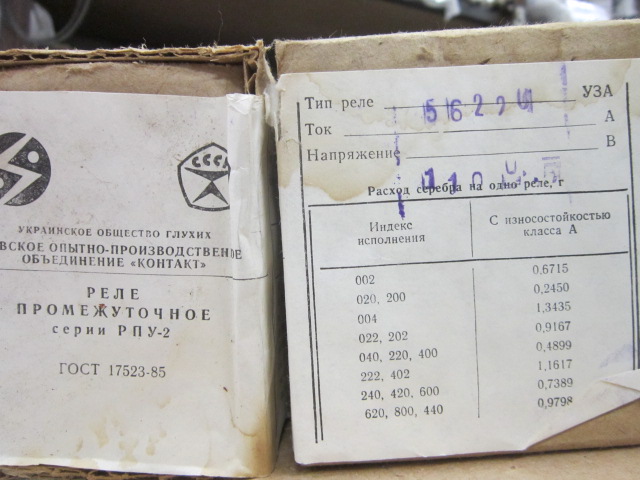 СССР
УКРАИНСКОЕ ОБЩЕСТВО ГЛУХИХ
ВСКОЕ ОПЫТНО-ПРОИЗВОДСТВЕННОЕ
ОБЪЕДИНЕНИЕ «КОНТАКТ»
РЕЛЕ
ПРОМЕЖУТОЧНОЕ
серии РПУ-2
ГОСТ 17523-85
Тип реле УЗА
Ток А
Напряжение В
Расход серебра на одно реле, г
Индекс исполнения С износостойкостью класса А
002 0,6715
020, 200 0,2450
004 1,3435
022, 202 0,9167
040, 220, 400 0,4899
222, 402 1,1617
240, 420, 600 0,7389
620, 800, 440 0,9798